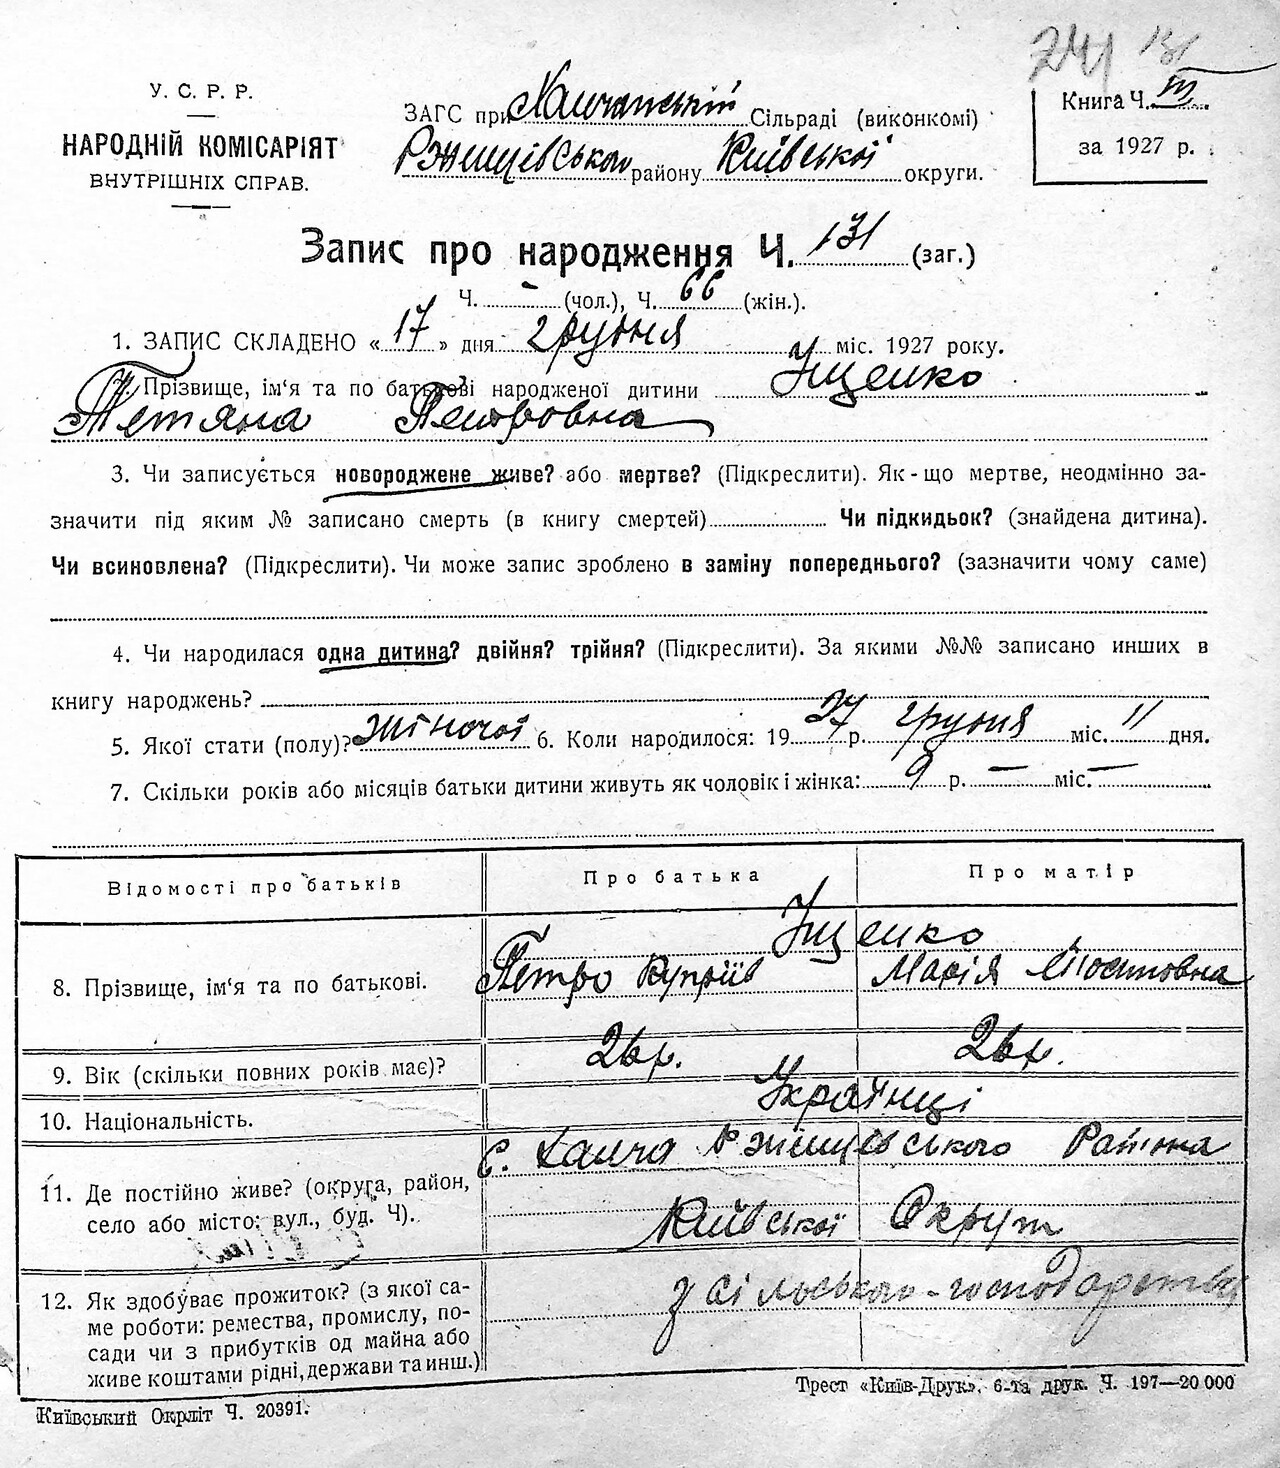 241 131
У. С. Р. Р.
НАРОДНІЙ КОМІСАРІЯТ
ВНУТРІШНІХ СПРАВ.
ЗАГС при Халчанській Сільраді (виконкомі)
Ржищівського району Київської округи.
Книга Ч. III.
за 1927 р.
Запис про народження Ч. 131 (заг.)
Ч. - (чол.), Ч. 66 (жін.).
1. ЗАПИС СКЛАДЕНО «17» дня грудня міс. 1927 року.
2. Прізвище, ім'я та по батькові народженої дитини Іщенко
Тетяна Петровна
3. Чи записується новороджене живе? або мертве? (Підкреслити). Як-що мертве, неодмінно за-
значити під яким № записано смерть (в книгу смертей) Чи підкидьок? (знайдена дитина).
Чи всиновлена? (Підкреслити). Чи може запис зроблено в заміну попереднього? (зазначити чому саме)
4. Чи народилася одна дитина? двійня? трійня? (Підкреслити). За якими №№ записано инших в
книгу народжень?
5. Якої стати (полу)? Жіночої 6. Коли народилося: 1927 р. грудня міс. 11 дня.
7. Скільки років або місяців батьки дитини живуть як чоловік і жінка: 9 р. — міс. —
Відомості про батьків Про батька Про матір
Іщенко
8. Прізвище, ім'я та по батькові. Петро Купріїв Марія Йосиповна
9. Вік (скільки повних років має)? 26 р. 26 р.
10. Національність. Українці
11. Де постійно живе? (округа, район,
село або місто: вул., буд. Ч).
с. Халча Ржищівського Району
Київської Округи
12. Як здобуває прожиток? (з якої са-
ме роботи: ремества, промислу, по-
сади чи з прибутків од майна або
живе коштами рідні, держави та инш.)
з сільського-господарства
Київський Окрліт Ч. 20391.
Трест «Київ-Друк», 6-та друк. Ч. 197—20 000